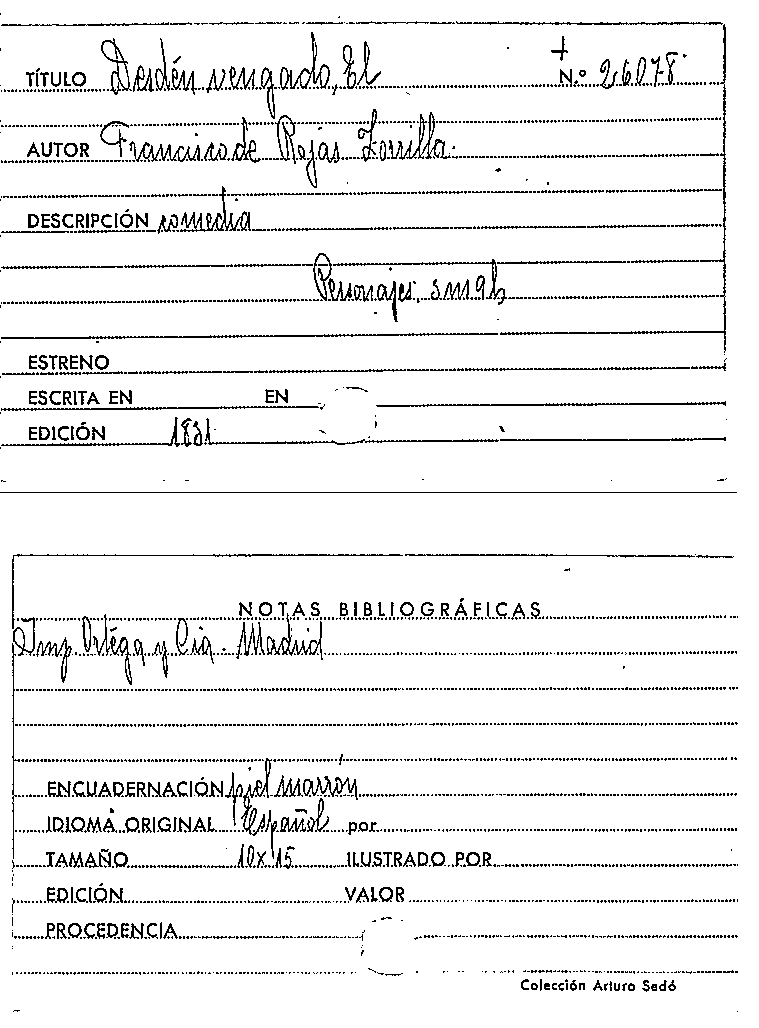 TÍTULO Desdén vengado, El N.º 26078
AUTOR Francisco de Rojas Zorrilla.
DESCRIPCIÓN comedia
Personajes: 3m 9h
ESTRENO
ESCRITA EN EN
EDICIÓN 1831
NOTAS BIBLIOGRÁFICAS
Imp. Ortéga y Cia. - Madrid
ENCUADERNACIÓN piel marrón
IDIOMA ORIGINAL Español por
TAMAÑO 10x15 ILUSTRADO POR
EDICIÓN VALOR
PROCEDENCIA
Colección Arturo Sedó